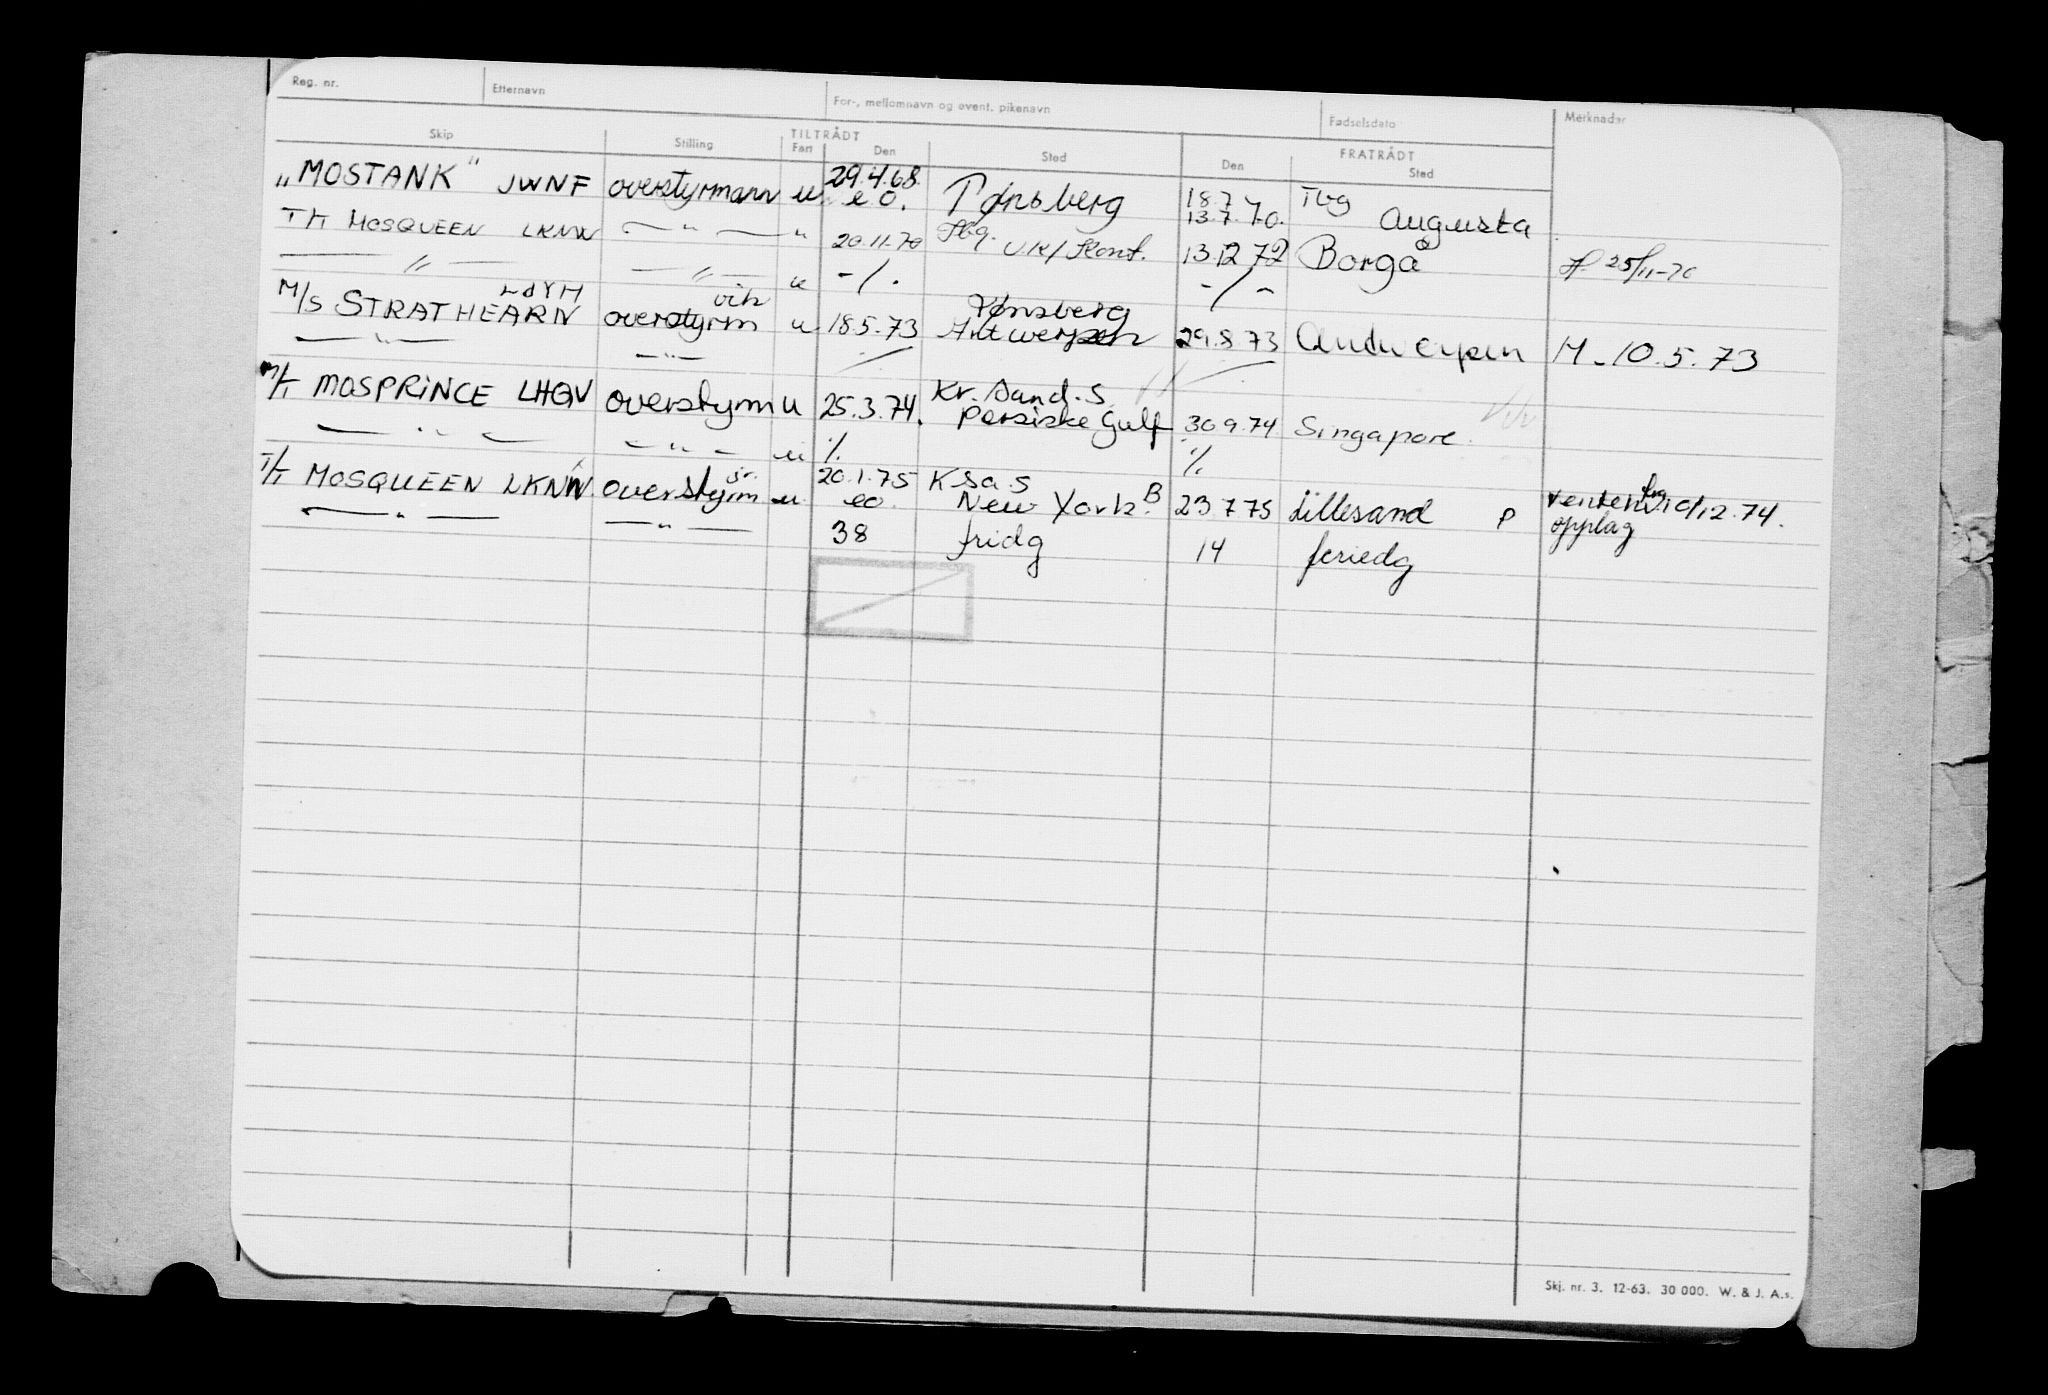 Reg. nr. Etternavn For-, mellomnavn og event. pikenavn Fødselsdato Merknader
TILTRÅDT FRATRÅDT
Skip Stilling Fart Den Sted Den Sted
„MOSTANK" JWNF overstyrmann u 29.4.68. Tønsberg 18.7 Tbg
e o. 13.7.70. Augusta
T/T MOSQUEEN LKNW — " — " 20.11.70 UK/Kont. 13.12.72 Borgå 25/11-70
— " — — " — u -/. -/-
M/S STRATHEARN overstyrm vik u 18.5.73 Tønsberg
Antwerpen 29.8.73 Andwerpen M. 10.5.73
— " — — " —
M/T MOSPRINCE LHGV overstyrm u 25.3.74. Kr.sand.S
Persiske Gulf 30.9.74 Singapore.
— " — — " — u ./. ./.
T/T MOSQUEEN LKNW overstyrm sr. u 20.1.75 K Sa. S
— " — — " — eo. New York. B 23.7.75 Lillesand P venter fra 10/12.74.
opplag
38 fridg 14 feriedg
Skj. nr. 3. 12-63. 30 000. W. & J. A.s.